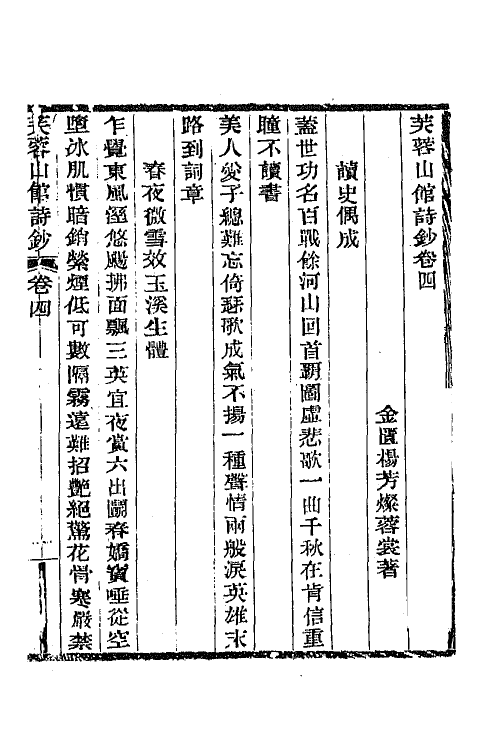 芙蓉山館詩鈔卷四
金匱楊芳燦蓉裳著
讀史偶成
蓋世功名百戰餘河山回首霸圖虛悲歌一曲千秋在肯信重
瞳不讀書
美人愛子總難忘倚瑟歌成氣不揚一種聲情兩般淚英雄末
路到詞章
春夜微雪效玉溪生體
乍覺東風溼悠颺拂面飄三英宜夜賞六出鬬春嬌寶唾從空
墮冰肌慣暗銷縈煙低可數隔霧遠難招艷絕鶯花骨寒嚴禁
芙蓉山館詩鈔
卷四
一